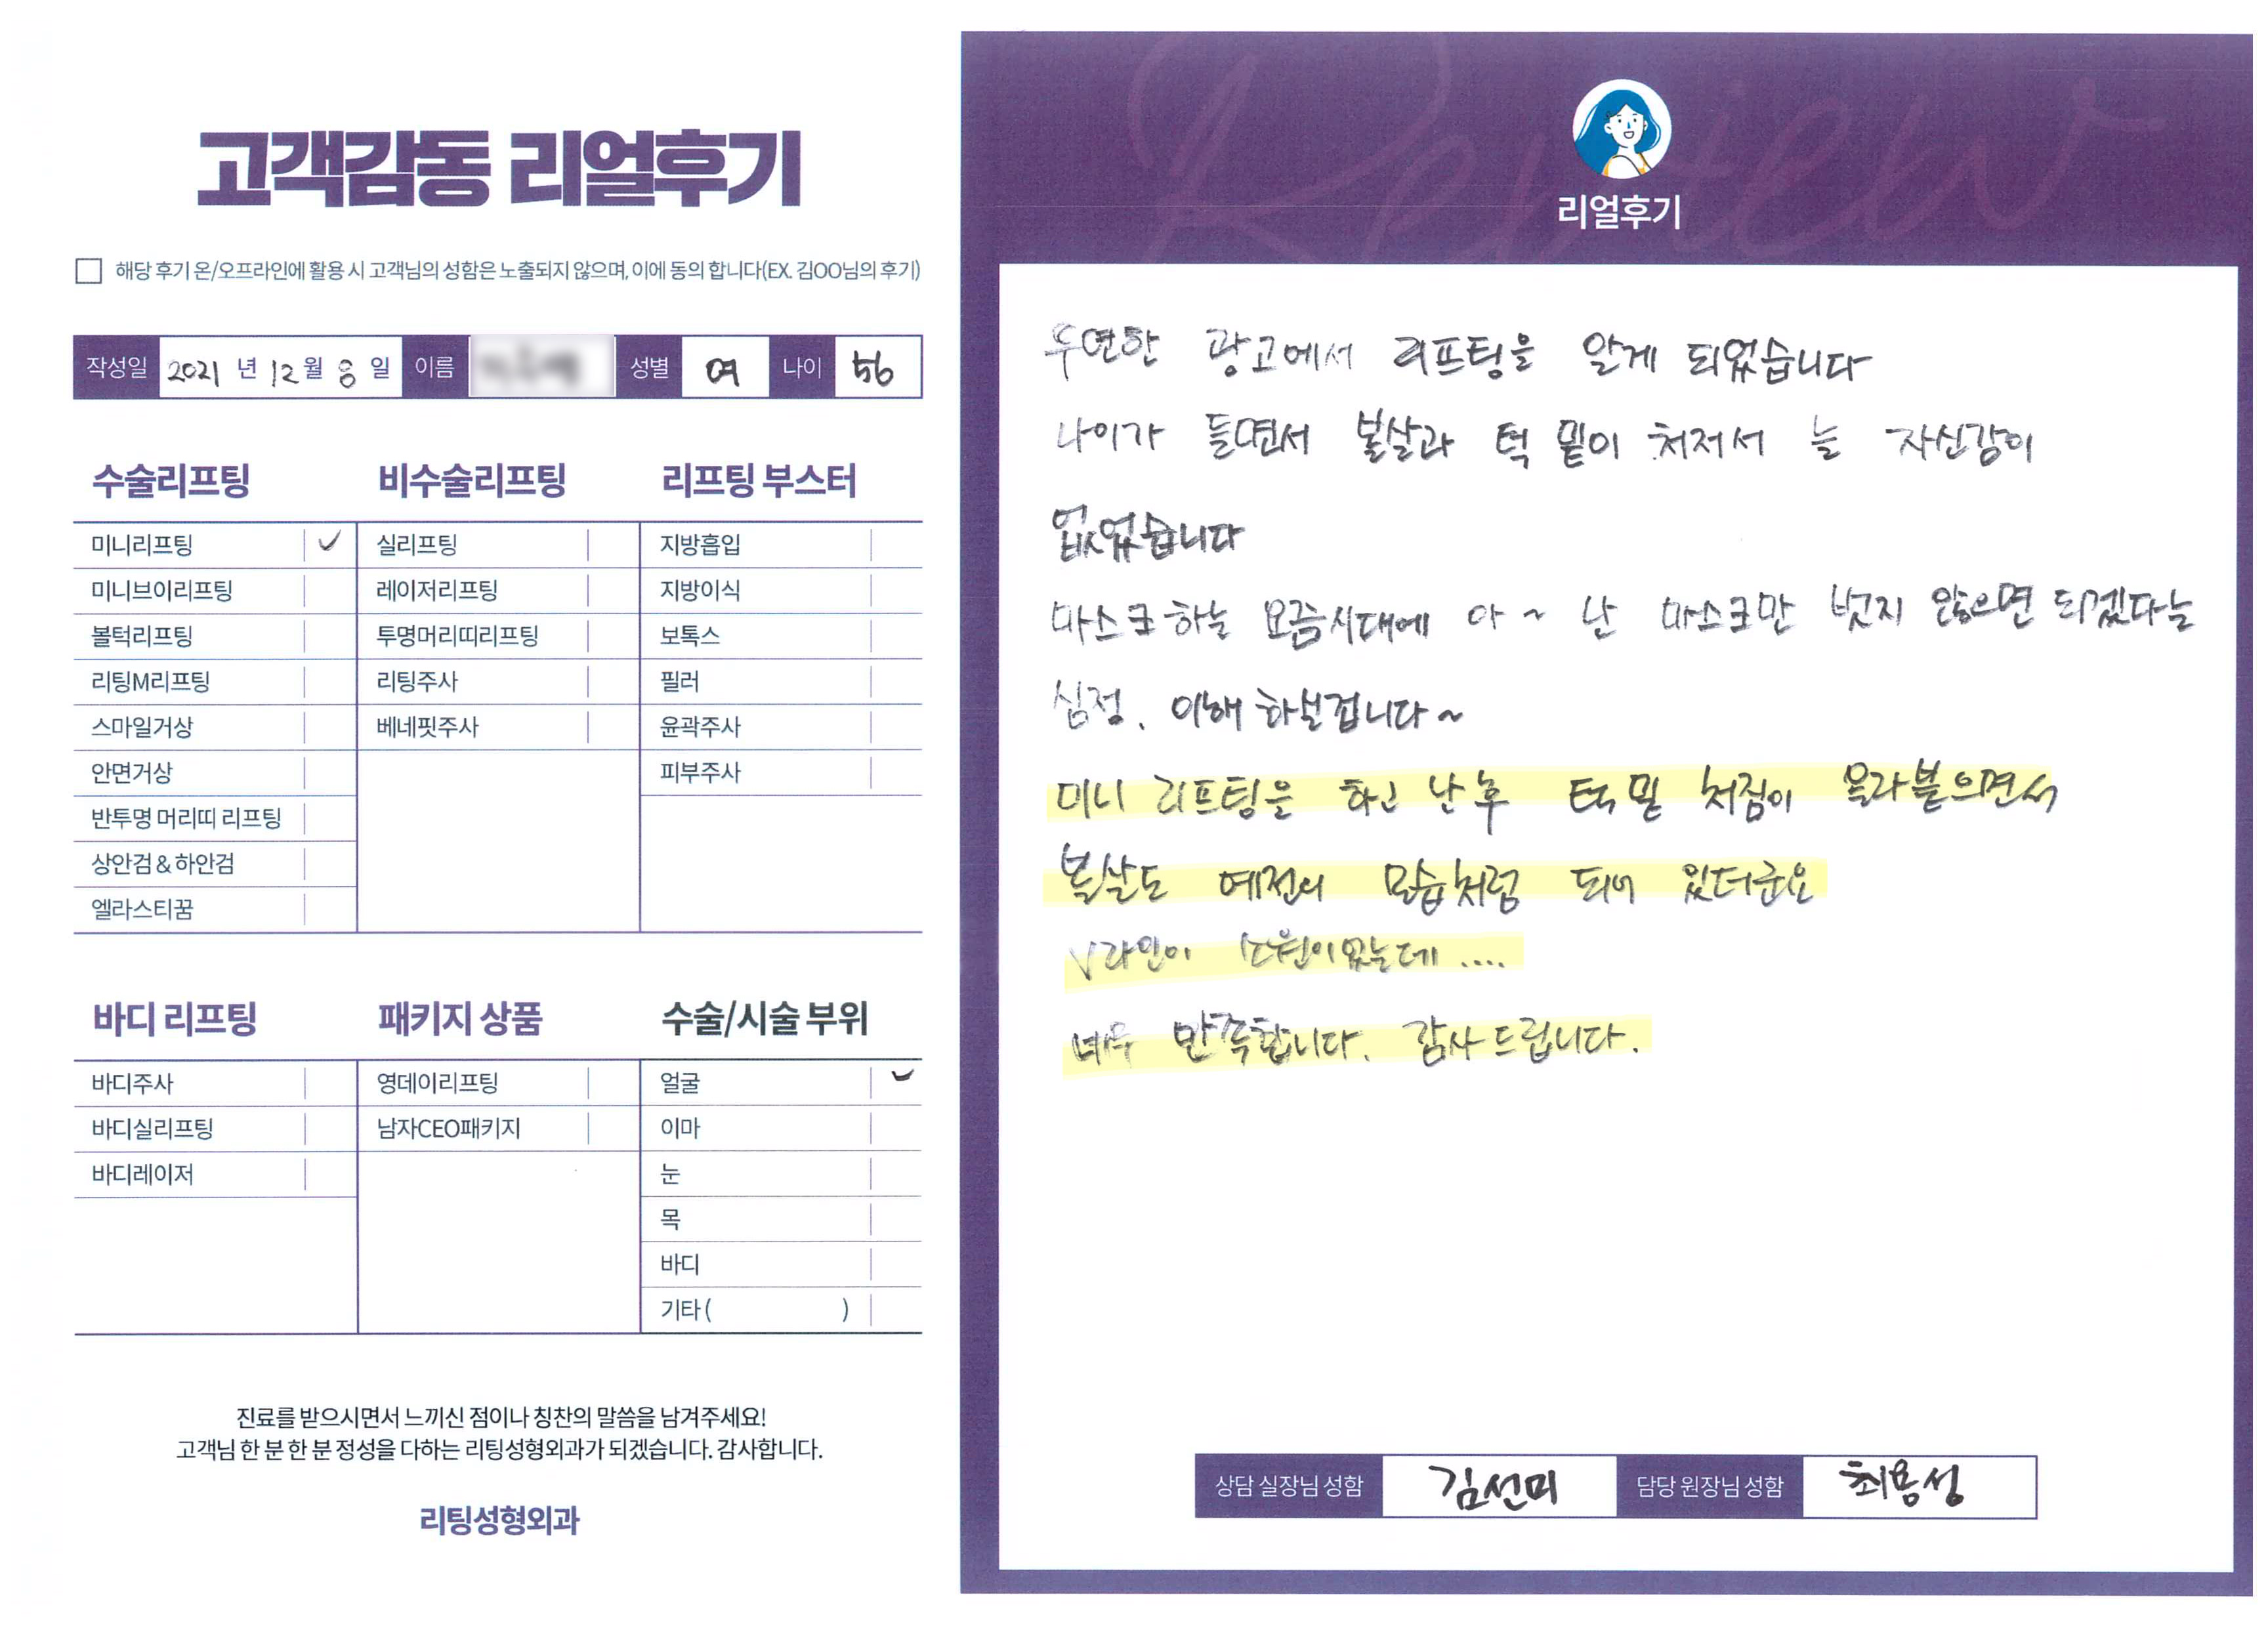 고객감동 리얼후기
해당 후기 온/오프라인에 활용 시 고객님의 성함은 노출되지 않으며, 이에 동의 합니다(EX. 김OO님의 후기)
작성일 2021 년 12 월 8 일 이름 성별 여 나이 56
수술리프팅
미니리프팅 ✓
미니브이리프팅
볼턱리프팅
리팅M리프팅
스마일거상
안면거상
반투명 머리띠 리프팅
상안검 & 하안검
엘라스티꿈
비수술리프팅
실리프팅
레이저리프팅
투명머리띠리프팅
리팅주사
베네핏주사
리프팅 부스터
지방흡입
지방이식
보톡스
필러
윤곽주사
피부주사
바디 리프팅
바디주사
바디실리프팅
바디레이저
패키지 상품
영데이리프팅
남자CEO패키지
수술/시술 부위
얼굴 ✓
이마
눈
목
바디
기타 ( )
진료를 받으시면서 느끼신 점이나 칭찬의 말씀을 남겨주세요!
고객님 한 분 한 분 정성을 다하는 리팅성형외과가 되겠습니다. 감사합니다.
리팅성형외과
Review
리얼후기
우연한 광고에서 리프팅을 알게 되었습니다
나이가 들면서 볼살과 턱 밑이 처저서 늘 자신감이
없었습니다
마스크하는 요즘시대에 아~ 난 마스크만 벗지 않으면 되겠다는
심정. 이해 하실겁니다~
미니 리프팅을 하고 난 후 턱밑 처짐이 올라붙으면서
볼살도 예전의 모습처럼 되어 있더군요
V라인이 소원이었는데 ....
너무 만족합니다. 감사드립니다.
상담 실장님 성함 김선미 담당 원장님 성함 최용성